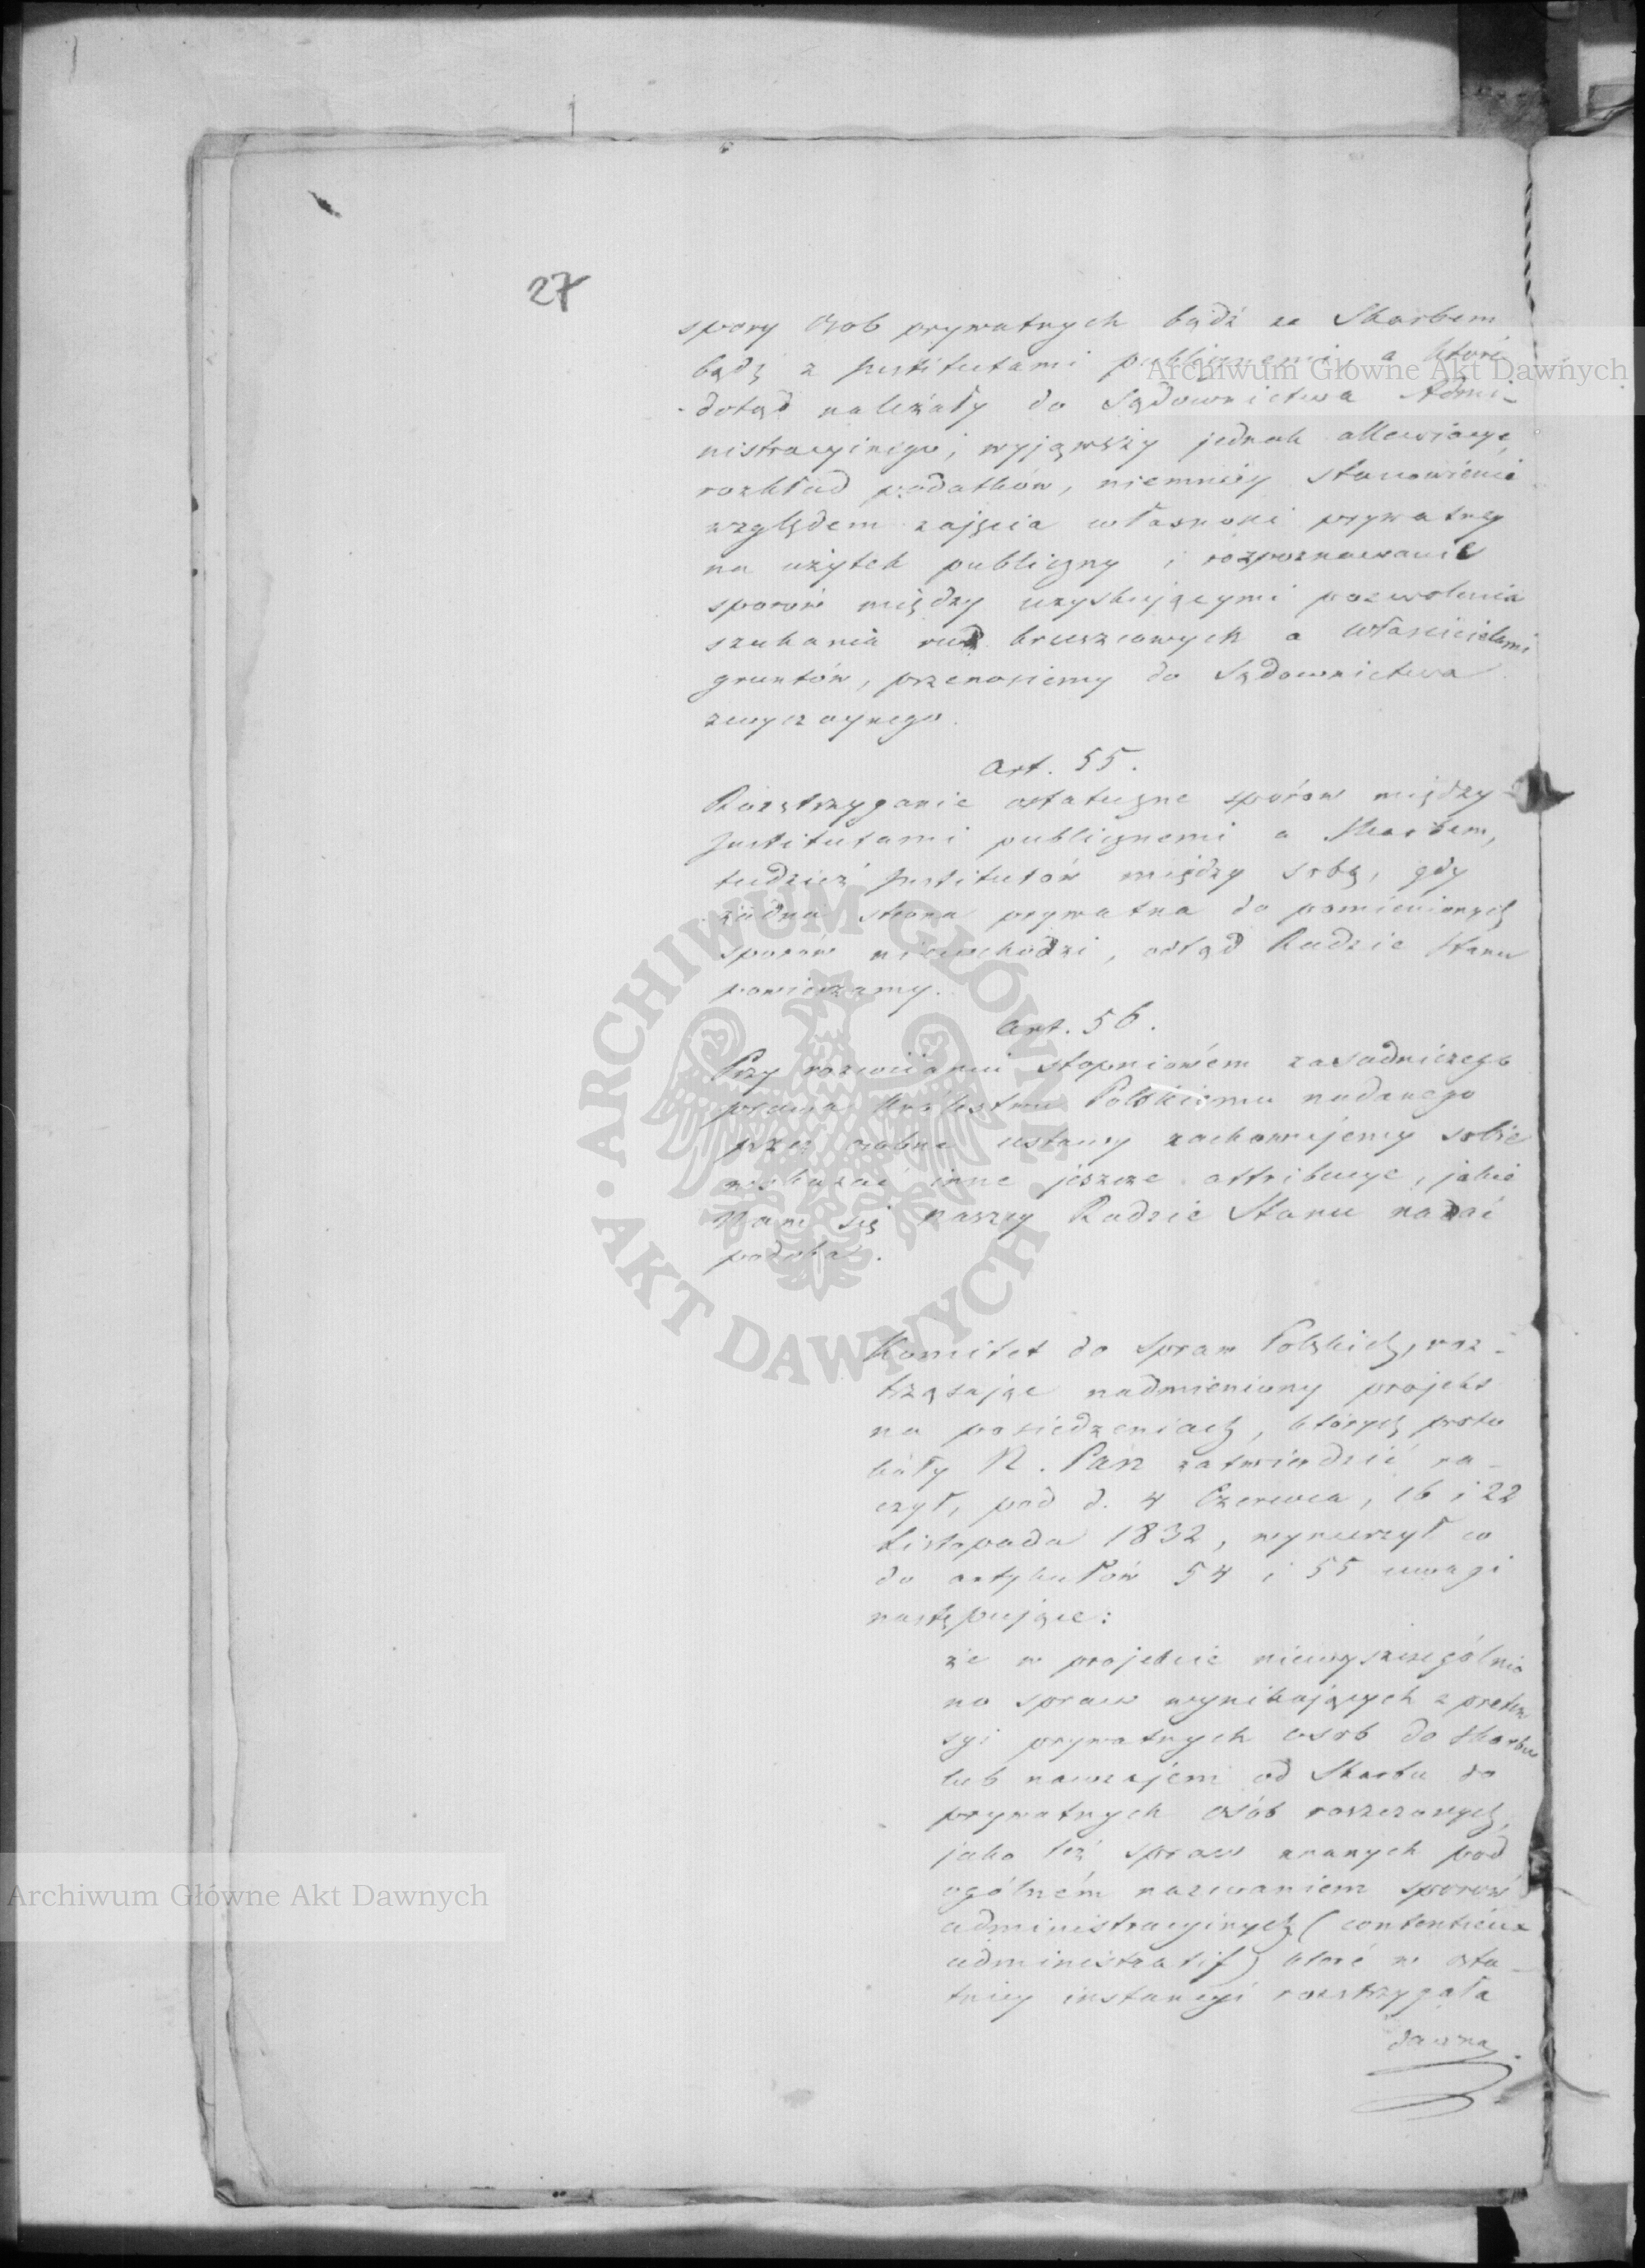 27
spory osób prywatnych bądź ze Skarbem
bądź z Institutami publicznemi, a które
dotąd należały do Sądownictwa Admi-
nistracyinego, wyjąwszy jednak allewiacye,
rozkład podatków, niemniéy stanowienie
względem zajęcia własności prywatnéy
na użytek publiczny i rozpoznawanie
sporów między uzyskującymi pozwolenia
szukania rud kruszcowych a właścicielami
gruntów, przenosiemy do Sądownictwa
zwyczaynego.
Art. 55.
Rozstrzyganie ostateczne sporów między
Institutami publicznemi a Skarbem,
tudzież Institutów między sobą, gdy
żadna strona prywatna do pomienionych
sporów niewchodzi, odtąd Radzie Stanu
powierzamy.
Art. 56.
Przy rozwiianiu stopniowém zasadniczego
prawa Królestwu Polskiemu nadanego
przez osobne ustawy zachowujemy sobie
wskazać inne jeszcze attribucye, jakie
Nam się naszéy Radzie Stanu nadać
podoba.
Komitet do spraw Polskich, roz-
trząsając nadmieniony projekt
na posiedzeniach, których proto
kóły N. Pan zatwierdzić ra-
czył, pod d. 4 Czerwca, 16 i 22
Listopada 1832, wynurzył co
do artykułów 54 i 55 uwagi
następujące:
że w projekcie niewyszczególnio
no spraw wynikających z preten
syi prywatnych osób do Skarbu
lub nawzajem od Skarbu do
prywatnych osób roszczonych,
jako też spraw znanych pod
ogólném nazwaniem sporów
administracyinych (contentieux
administratif) które w osta-
tniéy instancyi rozstrzygała
dawna
Archiwum Główne Akt Dawnych
ARCHIWUM GŁÓWNE · AKT DAWNYCH ·
Archiwum Główne Akt Dawnych